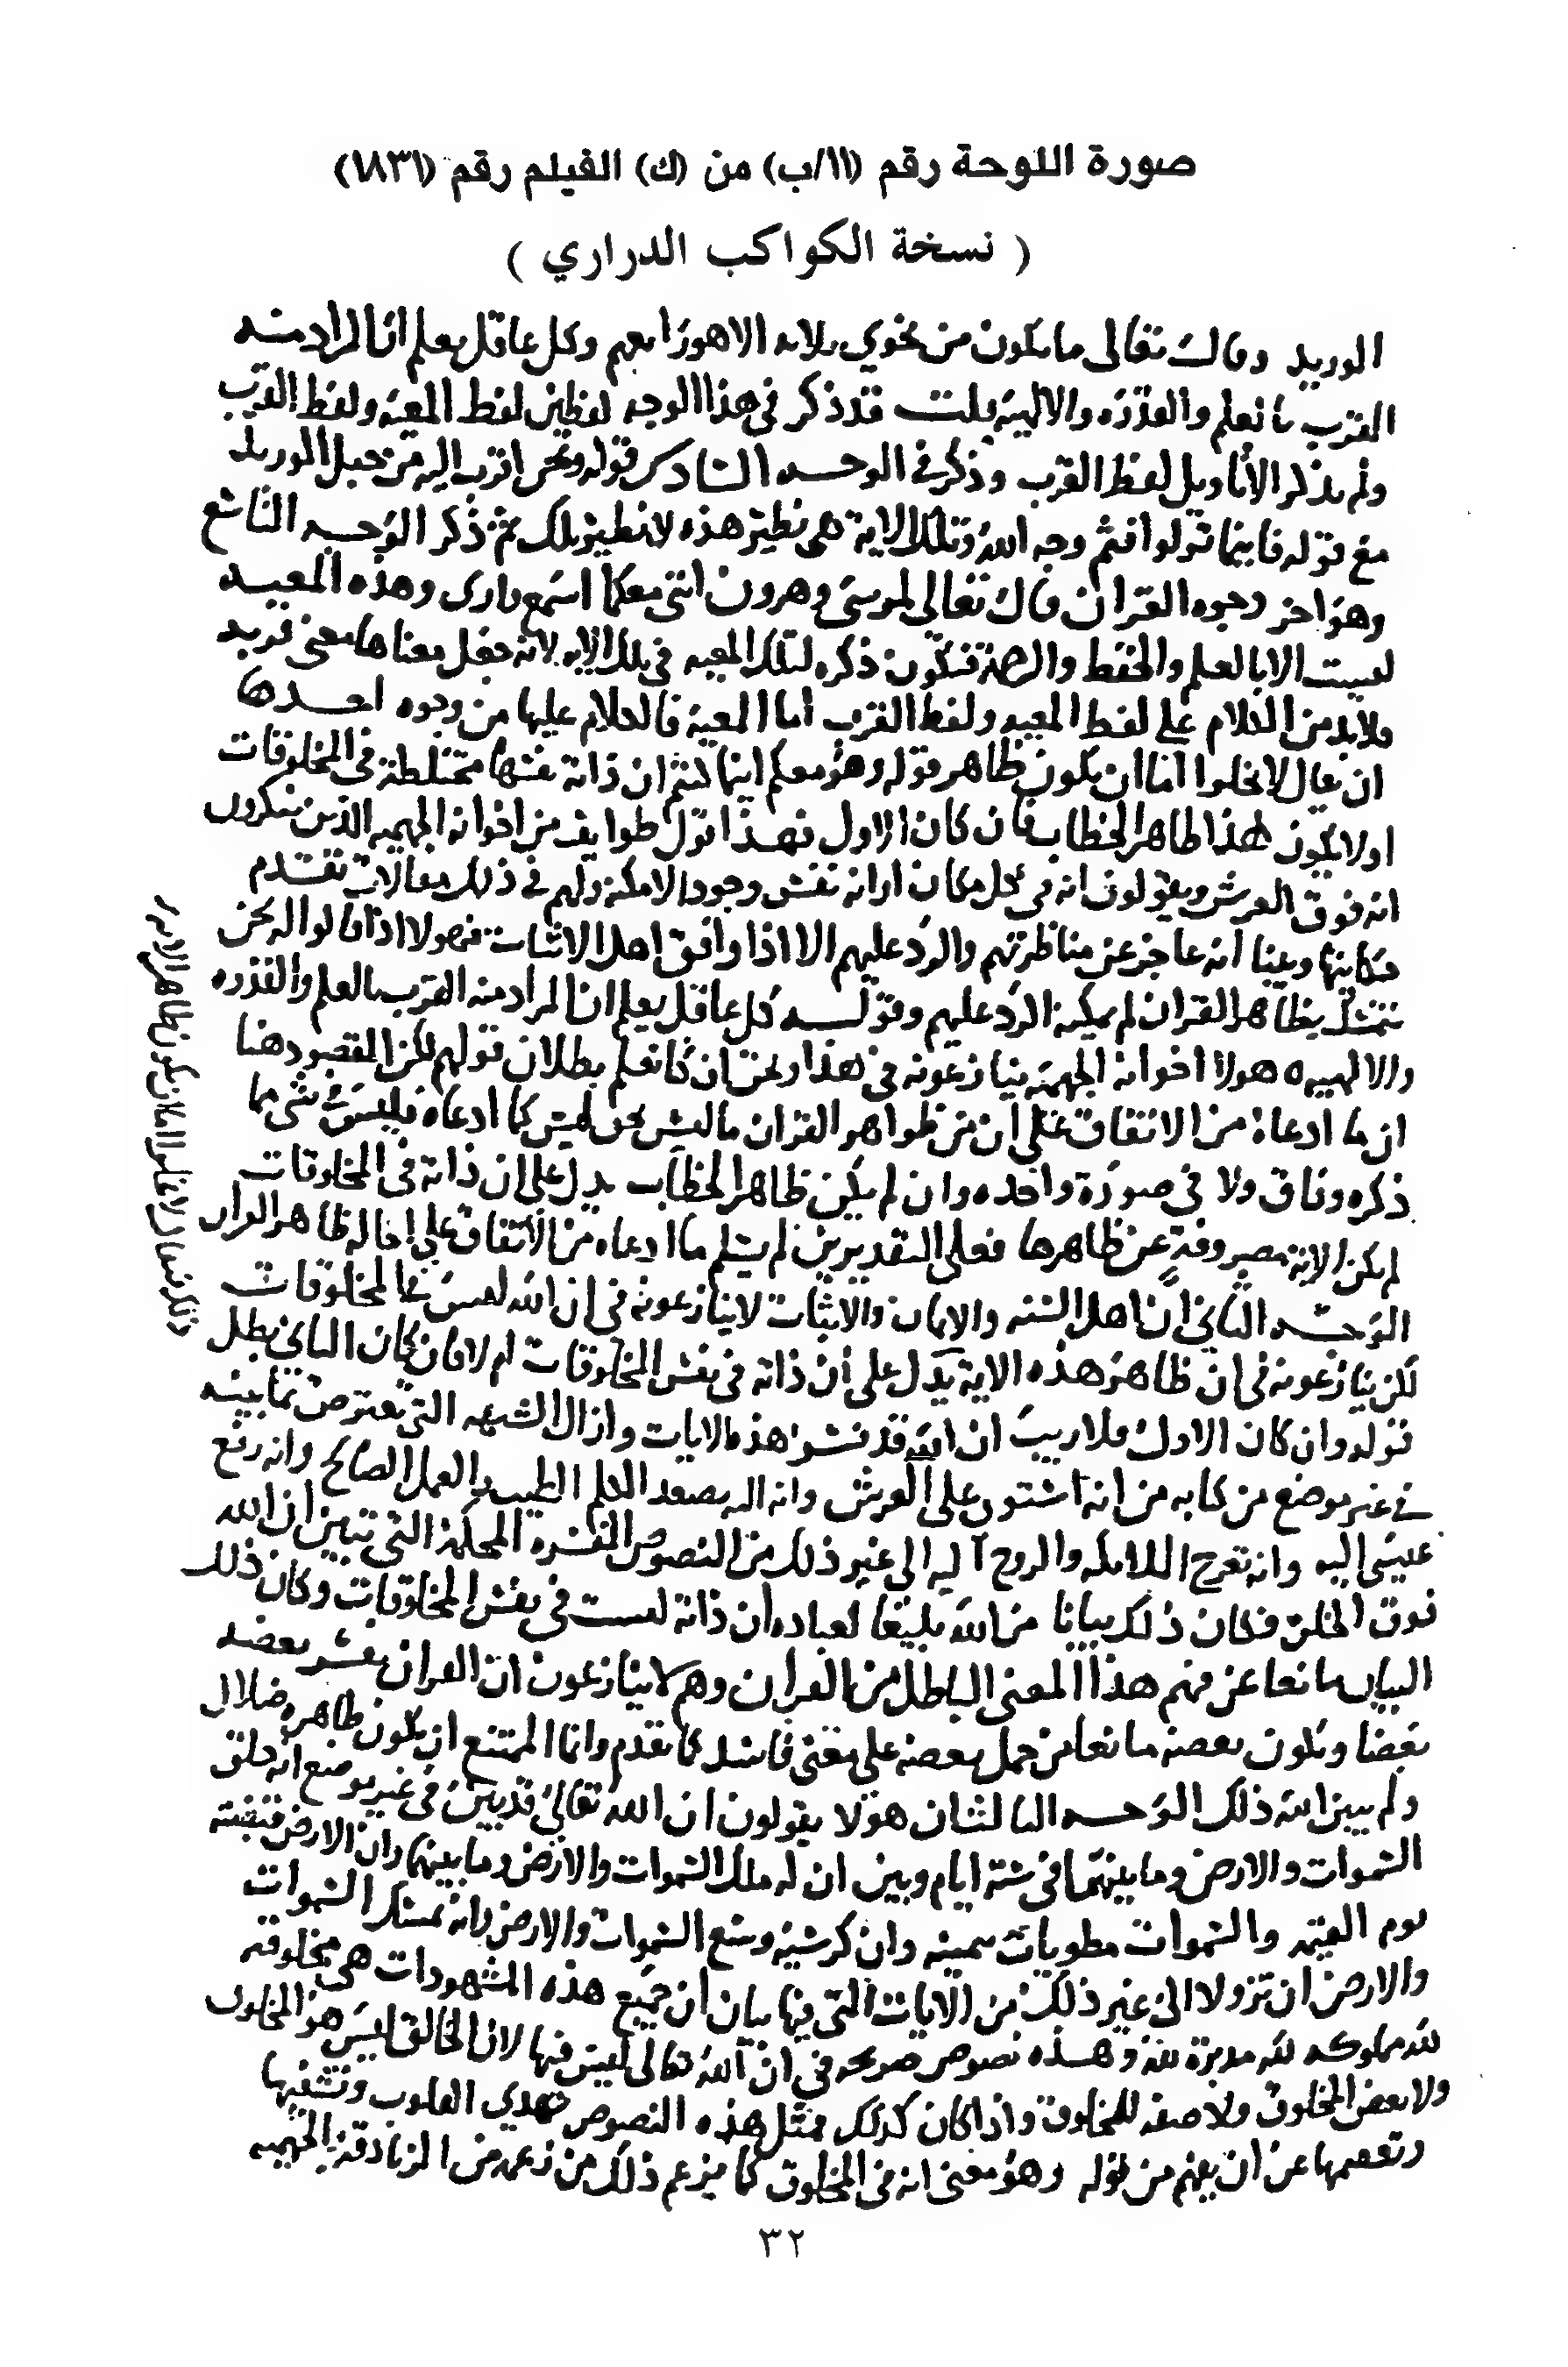 صورة اللوحة رقم (١١/ب) من (ك) الفيلم رقم (١٨٣١)
( نسخة الكواكب الدراري )
الوريد وقال تعالى ما يكون من نجوي ثلاثه الا هو رابعهم وكل عاقل يعلم ان المراد منه
القرب بالعلم والقدره والالهيه قلت قد ذكر في هذا الوجه لفظين لفظ المعيه ولفظ القرب
ولم يذكر الا تاويل لفظ القرب وذكر في الوجه السادس قوله ونحن اقرب اليه من حبل الوريد
مع قوله فاينما تولوا فثم وجه الله وتلك الاية هي نظيرة هذه لا نظير تلك ثم ذكر الوجه التاسع
وهو اخر وجوه القران قال تعالى لموسى وهرون انني معكما اسمع وارى وهذه المعيه
ليست الا بالعلم والحفظ والرحمة فتكون ذكره لتلك المعيه في تلك الايه لانه جعل معناها معنى قريب
ولا بد من الكلام على لفظ المعيه ولفظ القرب اما المعية فالكلام عليها من وجوه احدها
ان يقال لا يخلوا اما ان يكون ظاهر قوله وهو معكم اينما كنتم ان ذاته نفسها مختلطة في المخلوقات
او لا يكون هذا ظاهر الخطاب فان كان الاول فهذا قول طوايف من اخوانه الجهميه الذين ينكرون
انه فوق العرش ويقولون انه في كل مكان او انه نفس وجود الامكنه ولهم في ذلك مقالات تقدم
حكايتها وبينا انه عاجز عن مناظرتهم والرد عليهم الا اذا وافق اهل الاثبات فهولا اذا قالوا له نحن
نتمسك بظاهر القران لم يمكنه الرد عليهم وقوله كل عاقل يعلم ان المراد منه القرب بالعلم والقدره
والالهييه هولا اخوانه الجهميه ينازعونه في هذا ونحن ان كنا نعلم بطلان قولهم لكن المقصود هنا
ان ما ادعاه من الاتفاق على ان من ظواهر القران ما ليس بحق ليس كما ادعاه فليس في شي مما
ذكره وفاق ولا في صورة واحده وان لم يكن ظاهر الخطاب يدل على ان ذاته في المخلوقات
لم يكن الاية مصروفة عن ظاهرها فعلى التقديرين لم يسلم ما ادعاه من الاتفاق على احاله ظاهر القران
الوجه الثاني ان اهل السنه والايمان والاثبات لا ينازعونه في ان الله ليس في المخلوقات
لكن ينازعونه في ان ظاهر هذه الاية يدل على ان ذاته في نفس المخلوقات ام لا فان كان الثاني بطل
قوله وان كان الاول فلا ريب ان الله قد فسر هذه الايات وازال الشبهه التي تعترض بما بينه
في غير موضع من كتابه من انه استوى على العرش وانه اليه يصعد الكلم الطيب والعمل الصالح وانه رفع
عيسى اليه وانه تعرج الملائكه والروح اليه الى غير ذلك من النصوص المفسره المحكمة التي تبين ان الله
فوق الخلق فكان ذلك بيانا من الله بليغا لعباده ان ذاته ليست في نفس المخلوقات وكان ذلك
البيان مانعا عن فهم هذا المعنى الباطل من القران وهم لا ينازعون ان القران يفسر بعضه
بعضا ويكون بعضه مانعا من حمل بعضه على معنى فاسد كما تقدم وانما الممتنع ان يكون ظاهره ضلال
ولم يبين الله ذلك الوجه الثالث ان هؤلا يقولون ان الله تعالى قد بين في غير موضع انه خلق
السموات والارض وما بينهما في ستة ايام وبين ان له ملك السموات والارض وما بينهما وان الارض قبضته
يوم القيمه والسموات مطويات بيمينه وان كرسيه وسع السموات والارض وانه يمسك السموات
والارض ان تزولا الى غير ذلك من الايات التي فيها بيان ان جميع هذه المشهودات هي مخلوقه
لله مملوكه لله مدبرة لله وهذه نصوص صريحه في ان الله تعالى ليس فيها لان الخالق ليس هو المخلوق
ولا بعض المخلوق ولا صفه للمخلوق واذا كان كذلك فمثل هذه النصوص تهدي القلوب وتشفيها
وتعصمها عن ان يفهم من قوله وهو معنى انه في المخلوق كما يزعم ذلك من زعمه من الزنادقة الجهميه
٣٢